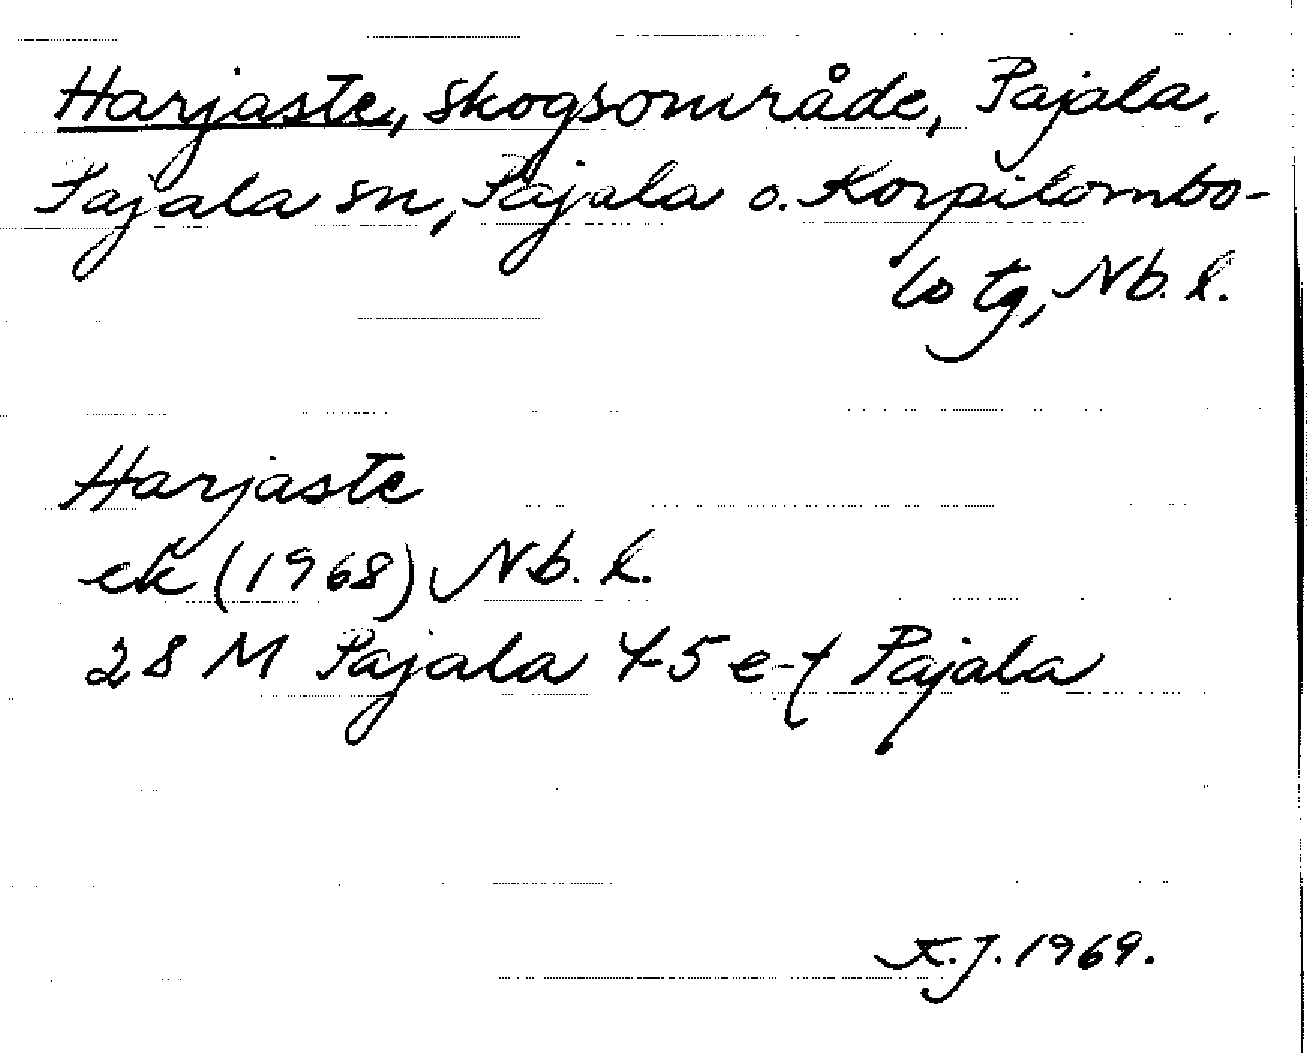 Harjaste, skogsområde, Pajala.
Pajala sn, Pajala o. Korpilombo-
lo tg, Nb. l.
Harjaste
ek (1968) Nb. l.
28 M Pajala 4-5 e-f Pajala
K.J. 1969.